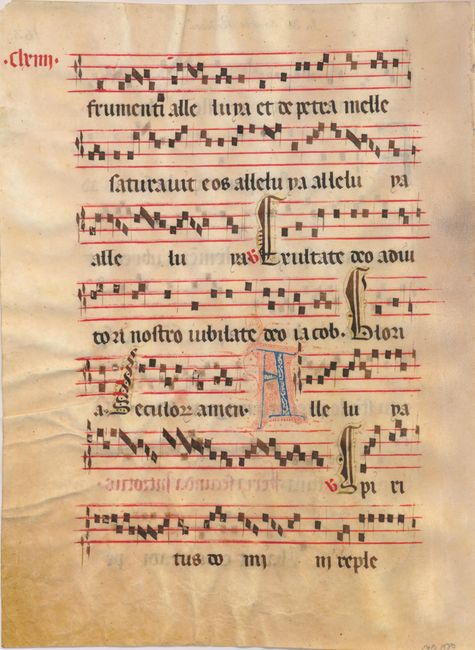 ·Clxiiii·
frumenti alle luya et de petra melle
saturavit eos allelu ya allelu ya
alle lu ya ℣ Exultate deo adiu
tori nostro iubilate deo iacob· Glori
a· Seculorz amen· A lle lu ya
℣ Spi ri
tus do mi ni reple